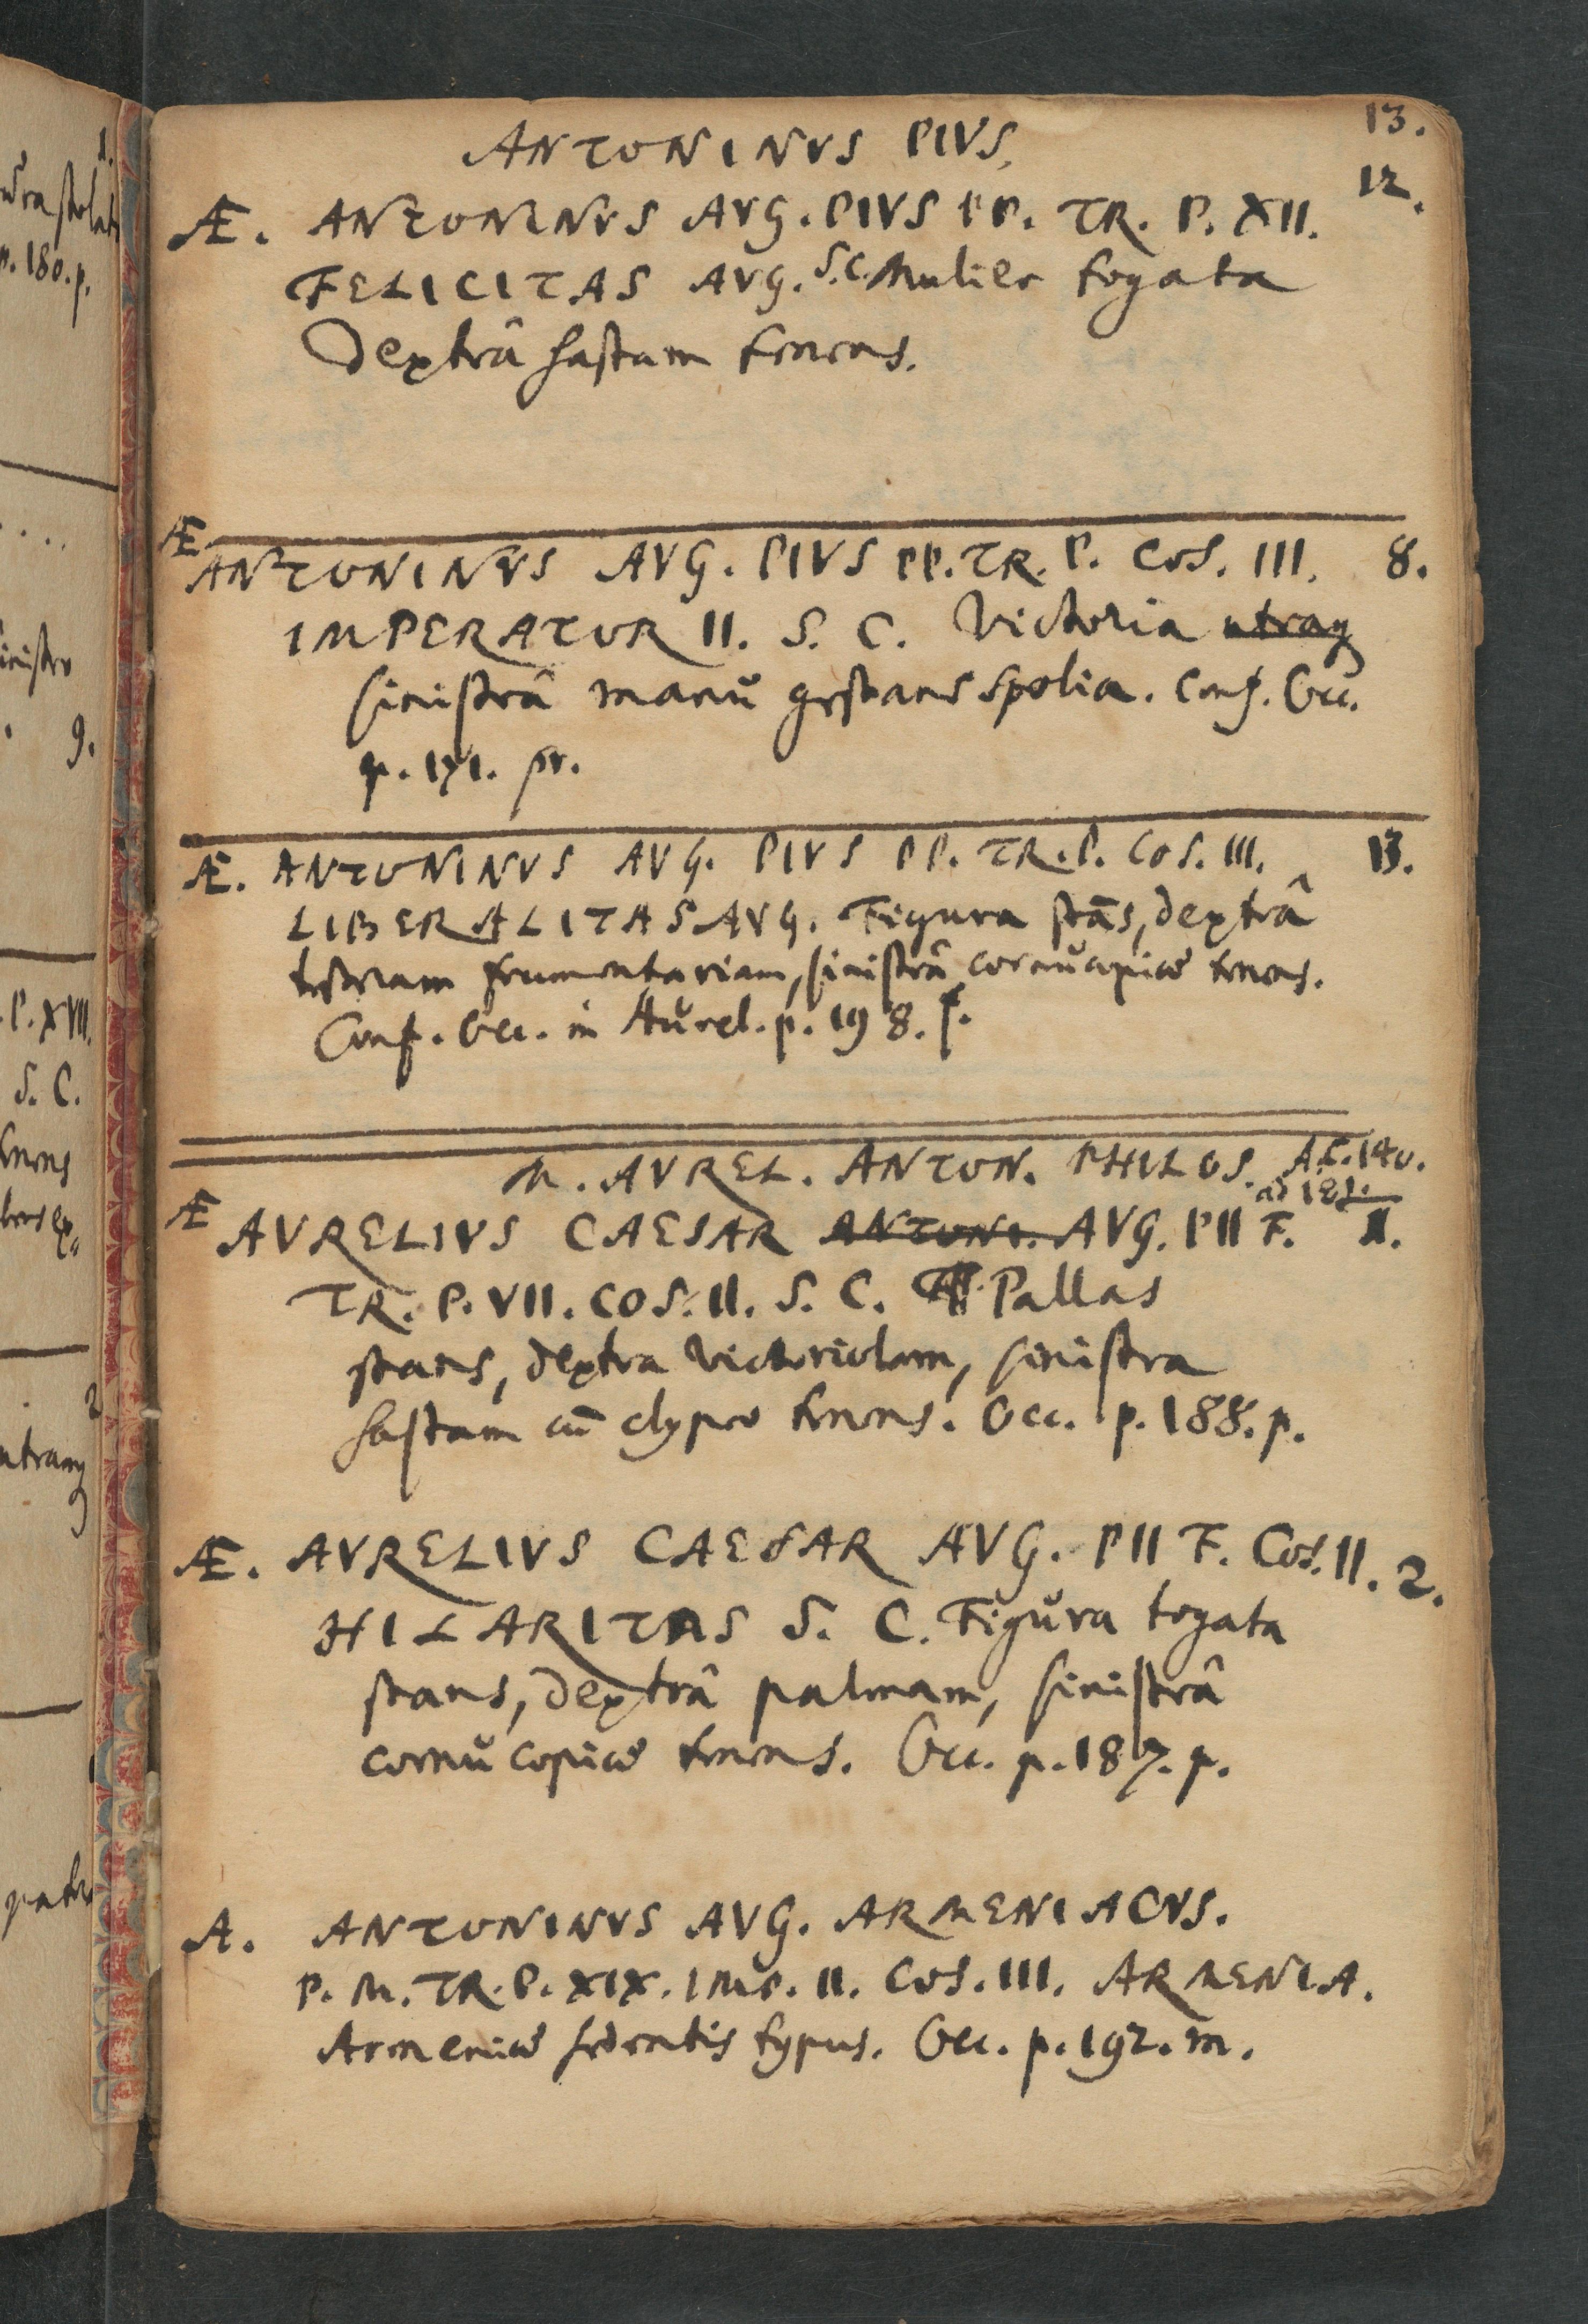 13.
ANTONINVS PIVS.
Æ. ANTONINVS AVG. PIVS PP. TR. P. XII. 12.
FELICITAS AVG. S.C. Mulier togata
dextrâ hastam tenens.
Æ
ANTONINVS AVG. PIVS PP. TR. P. COS. III. 8.
IMPERATOR II. S. C. Victoria utraq
sinistrâ manŭ gestans spolia. Conf. Occ.
p. 171. pr.
Æ. ANTONINVS AVG. PIVS PP. TR. P. COS. III. 13.
LIBERALITAS AVG. Figura stās, dextrâ
tesseram frumentariam, sinistrâ cornŭcopiæ tenens.
Conf. Occ. in Aŭrel. p. 198. f.
M. AVREL. ANTON. PHILOS. A.C. 140.
ad 181.
Æ AVRELIVS CAESAR ANTONI. AVG. PII F. 1.
TR. P. VII. COS. II. S. C. Pallas
stans, dextra Victoriolam, sinistra
hastam cū clypeo tenens. Occ. p. 188. p.
Æ. AVRELIVS CAESAR AVG. PII F. Cos. II. 2.
HILARITAS S. C. Figŭra togata
stans, dextrâ palmam, sinistrâ
cornŭcopiæ tenens. Occ. p. 187. p.
A. ANTONINVS AVG. ARMENIACVS.
P. M. TR. P. XIX. IMP. II. COS. III. ARMENIA.
Armeniæ sedentis typus. Occ. p. 192. m.